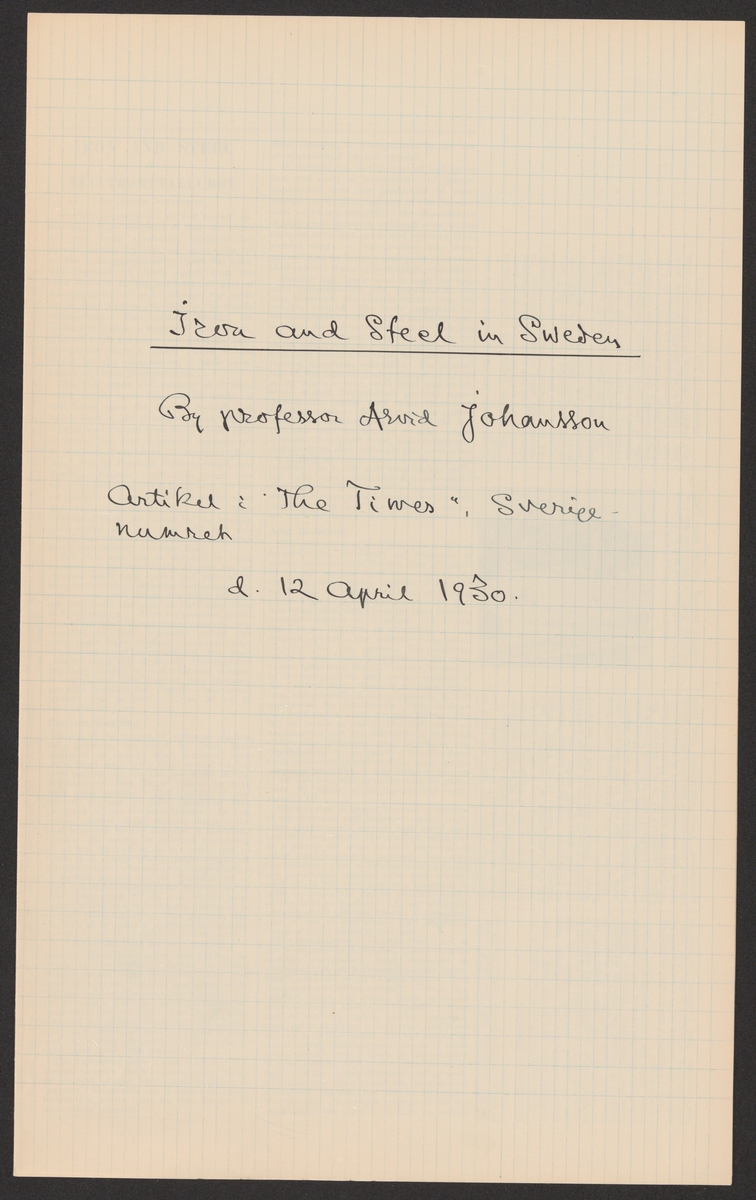 Iron and Steel in Sweden
By professor Arvid Johansson
Artikel i "The Times", Sverige-
numret
d. 12 April 1930.